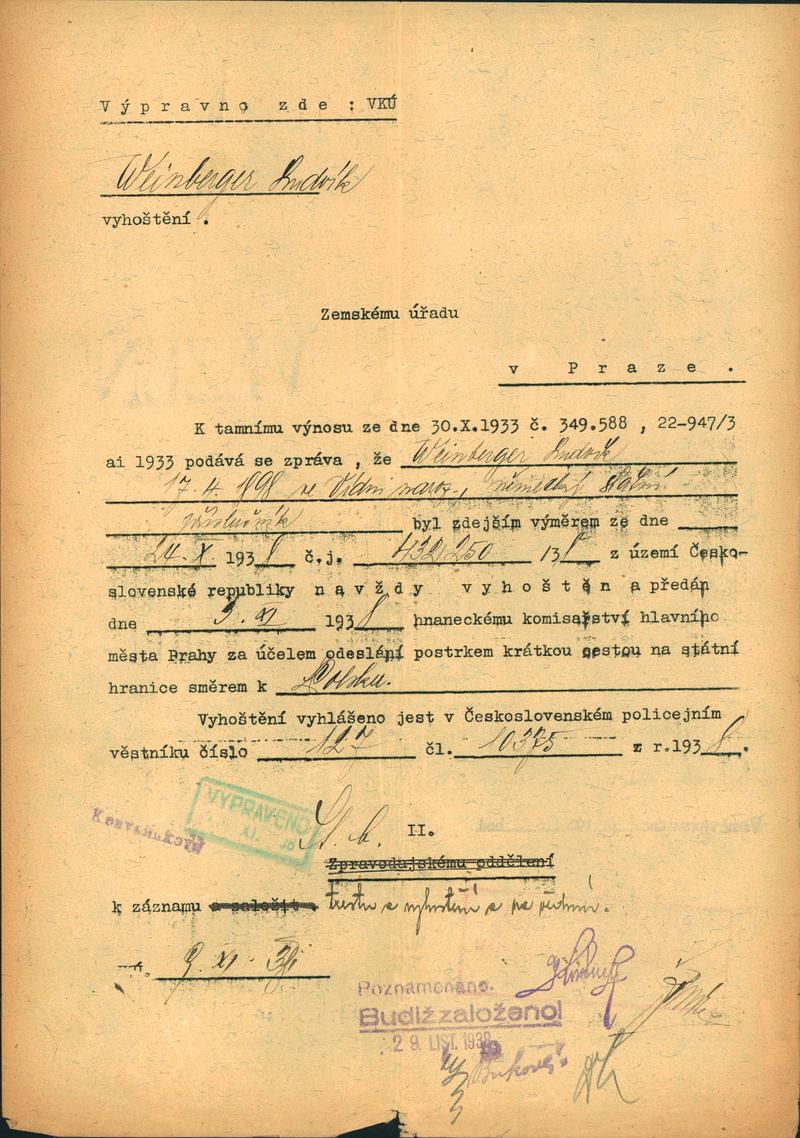 Výpravno zde : VKÚ
Weinberger Ludvík
vyhoštění .
Zemskému úřadu
v Praze .
K tamnímu výnosu ze dne 30.X.1933 č. 349.588 , 22-947/3
ai 1933 podává se zpráva , že Weinberger Ludvík
17.4.1898 ve Vídni naroz., německý státní
příslušník byl zdejším výměrem ze dne
24.X. 1938 č.j. 432,250 /38 z území Česko-
slovenské republiky navždy vyhoštěn a předán
dne 3.XI 1938 hnaneckému komisařství hlavního
města Prahy za účelem odeslání postrkem krátkou cestou na státní
hranice směrem k Polsku.
Vyhoštění vyhlášeno jest v Československém policejním
věstníku číslo 127 čl. 10375 z r.1938.
VYPRAVENO
XI. 38
St. b. II.
Zpravodajskému oddělení
k záznamu a založit trestu a vyhoštění a po vědomí.
9.XI.38
Poznamenáno.
Budiž založeno!
29. LIST. 1938